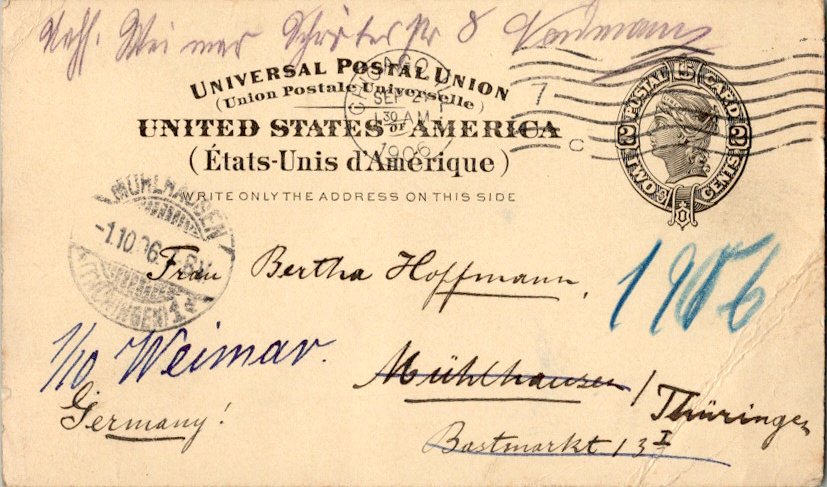 Weimar Schröter Str 8
UNIVERSAL POSTAL UNION
(Union Postale Universelle)
UNITED STATES OF AMERICA
(États-Unis d'Amérique)
WRITE ONLY THE ADDRESS ON THIS SIDE
CHICAGO
SEP 21
1 30 AM
1906
7
C
POSTAL CARD
2 2
TWO CENTS
MÜHLHAUSEN
-1.10.06.
(THÜRINGEN)
Frau Bertha Hoffmann,
1906
1/10 Weimar.
Mühlhausen / Thüringen
Germany!
Bastmarkt 13 I